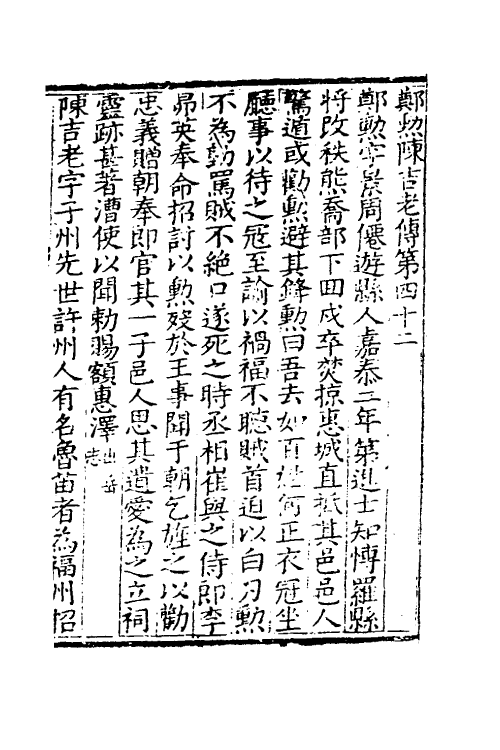 鄭勲陳吉老傳第四十二
鄭勲字景周僊遊縣人嘉泰二年第進士知博羅縣
將改秩熊喬部下囬戍卒焚掠惠城直抵其邑邑人
驚遁或勸勲避其鋒勲曰吾去如百姓何正衣冠坐
廳事以待之冦至諭以禍福不聴賊首迫以白刃勲
不為動罵賊不絶口遂死之時丞相崔與之侍郎李
昴英奉命招討以勲殁於王事聞于朝乞旌之以勸
忠義贈朝奉郎官其一子邑人思其遺愛為之立祠
靈跡甚著漕使以聞勅賜額惠澤出岳志
陳吉老字子州先世許州人有名魯苗者為福州招